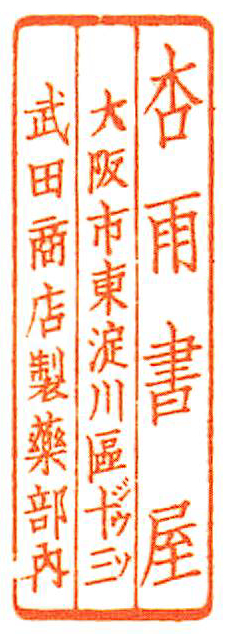 杏雨書屋
大阪市東淀川區十三
ジウソ
武田商店製藥部内